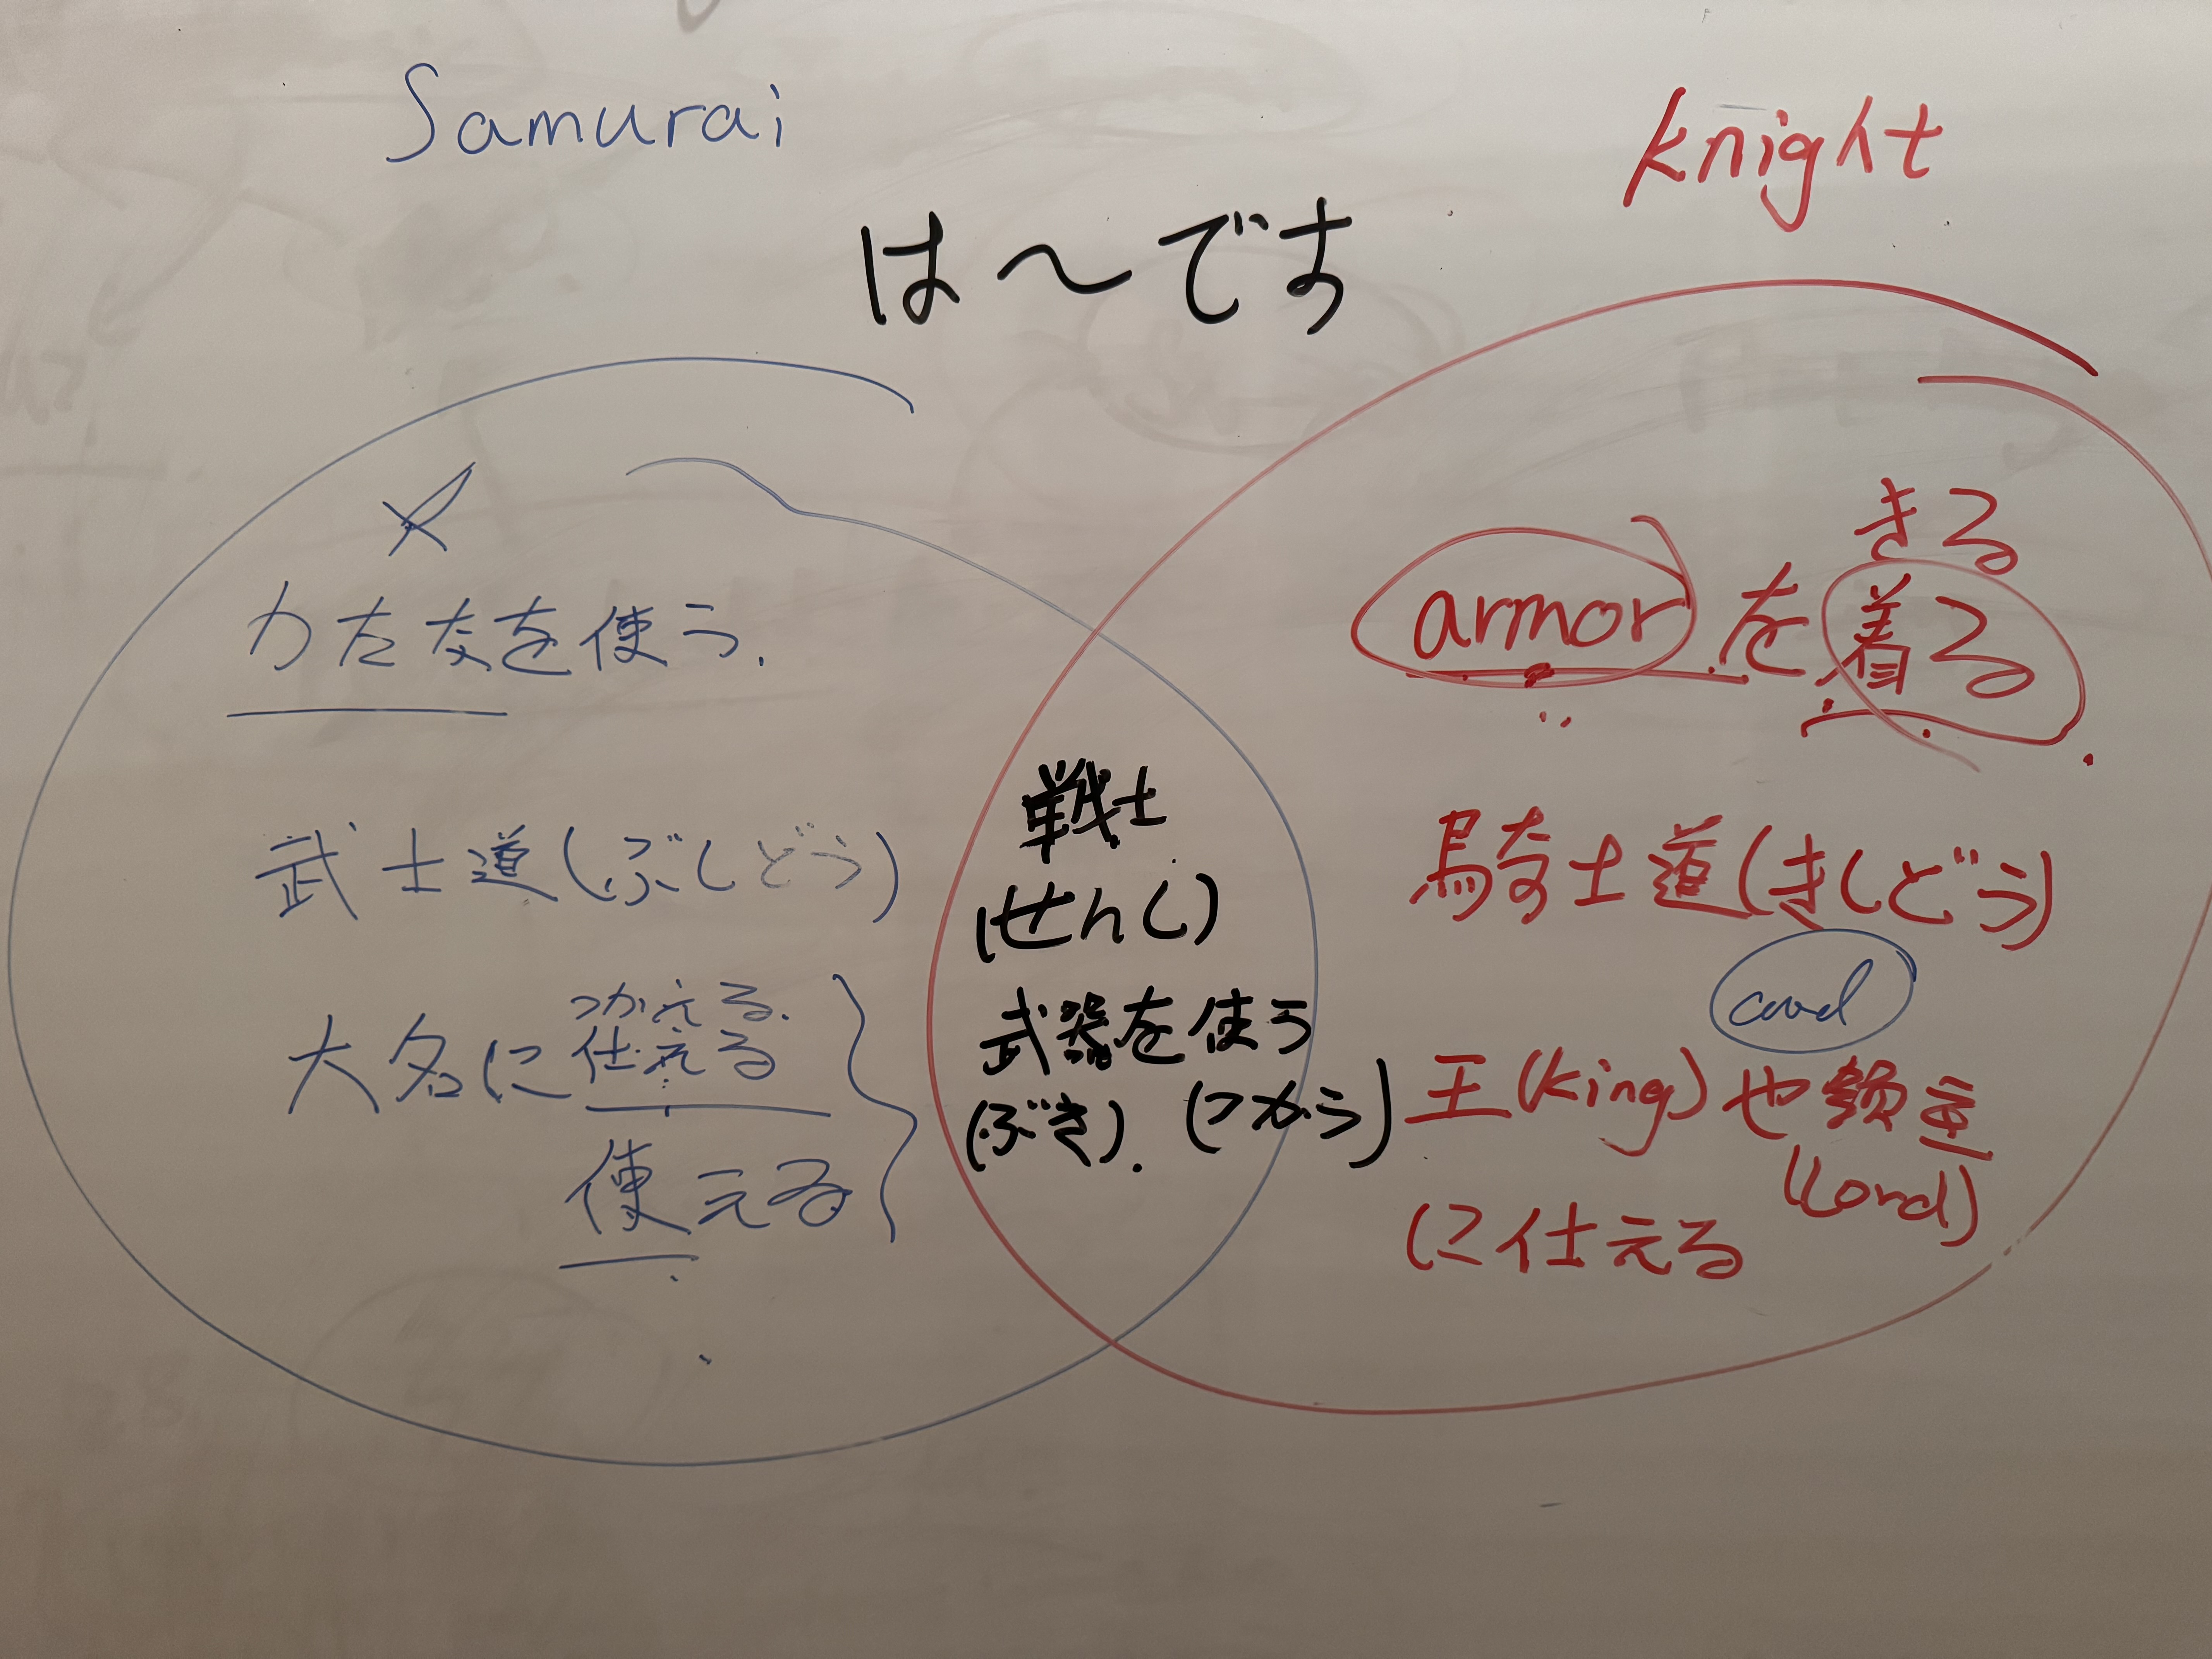 Samurai
knight
は〜です
かたなを使う.
武士道(ぶしどう)
つかえる.
大名に仕える
使える
戦士
(せんし)
武器を使う
(ぶき). (つかう)
きる
armorを着る
騎士道(きしどう)
王(king)や領主
(lord)
に仕える